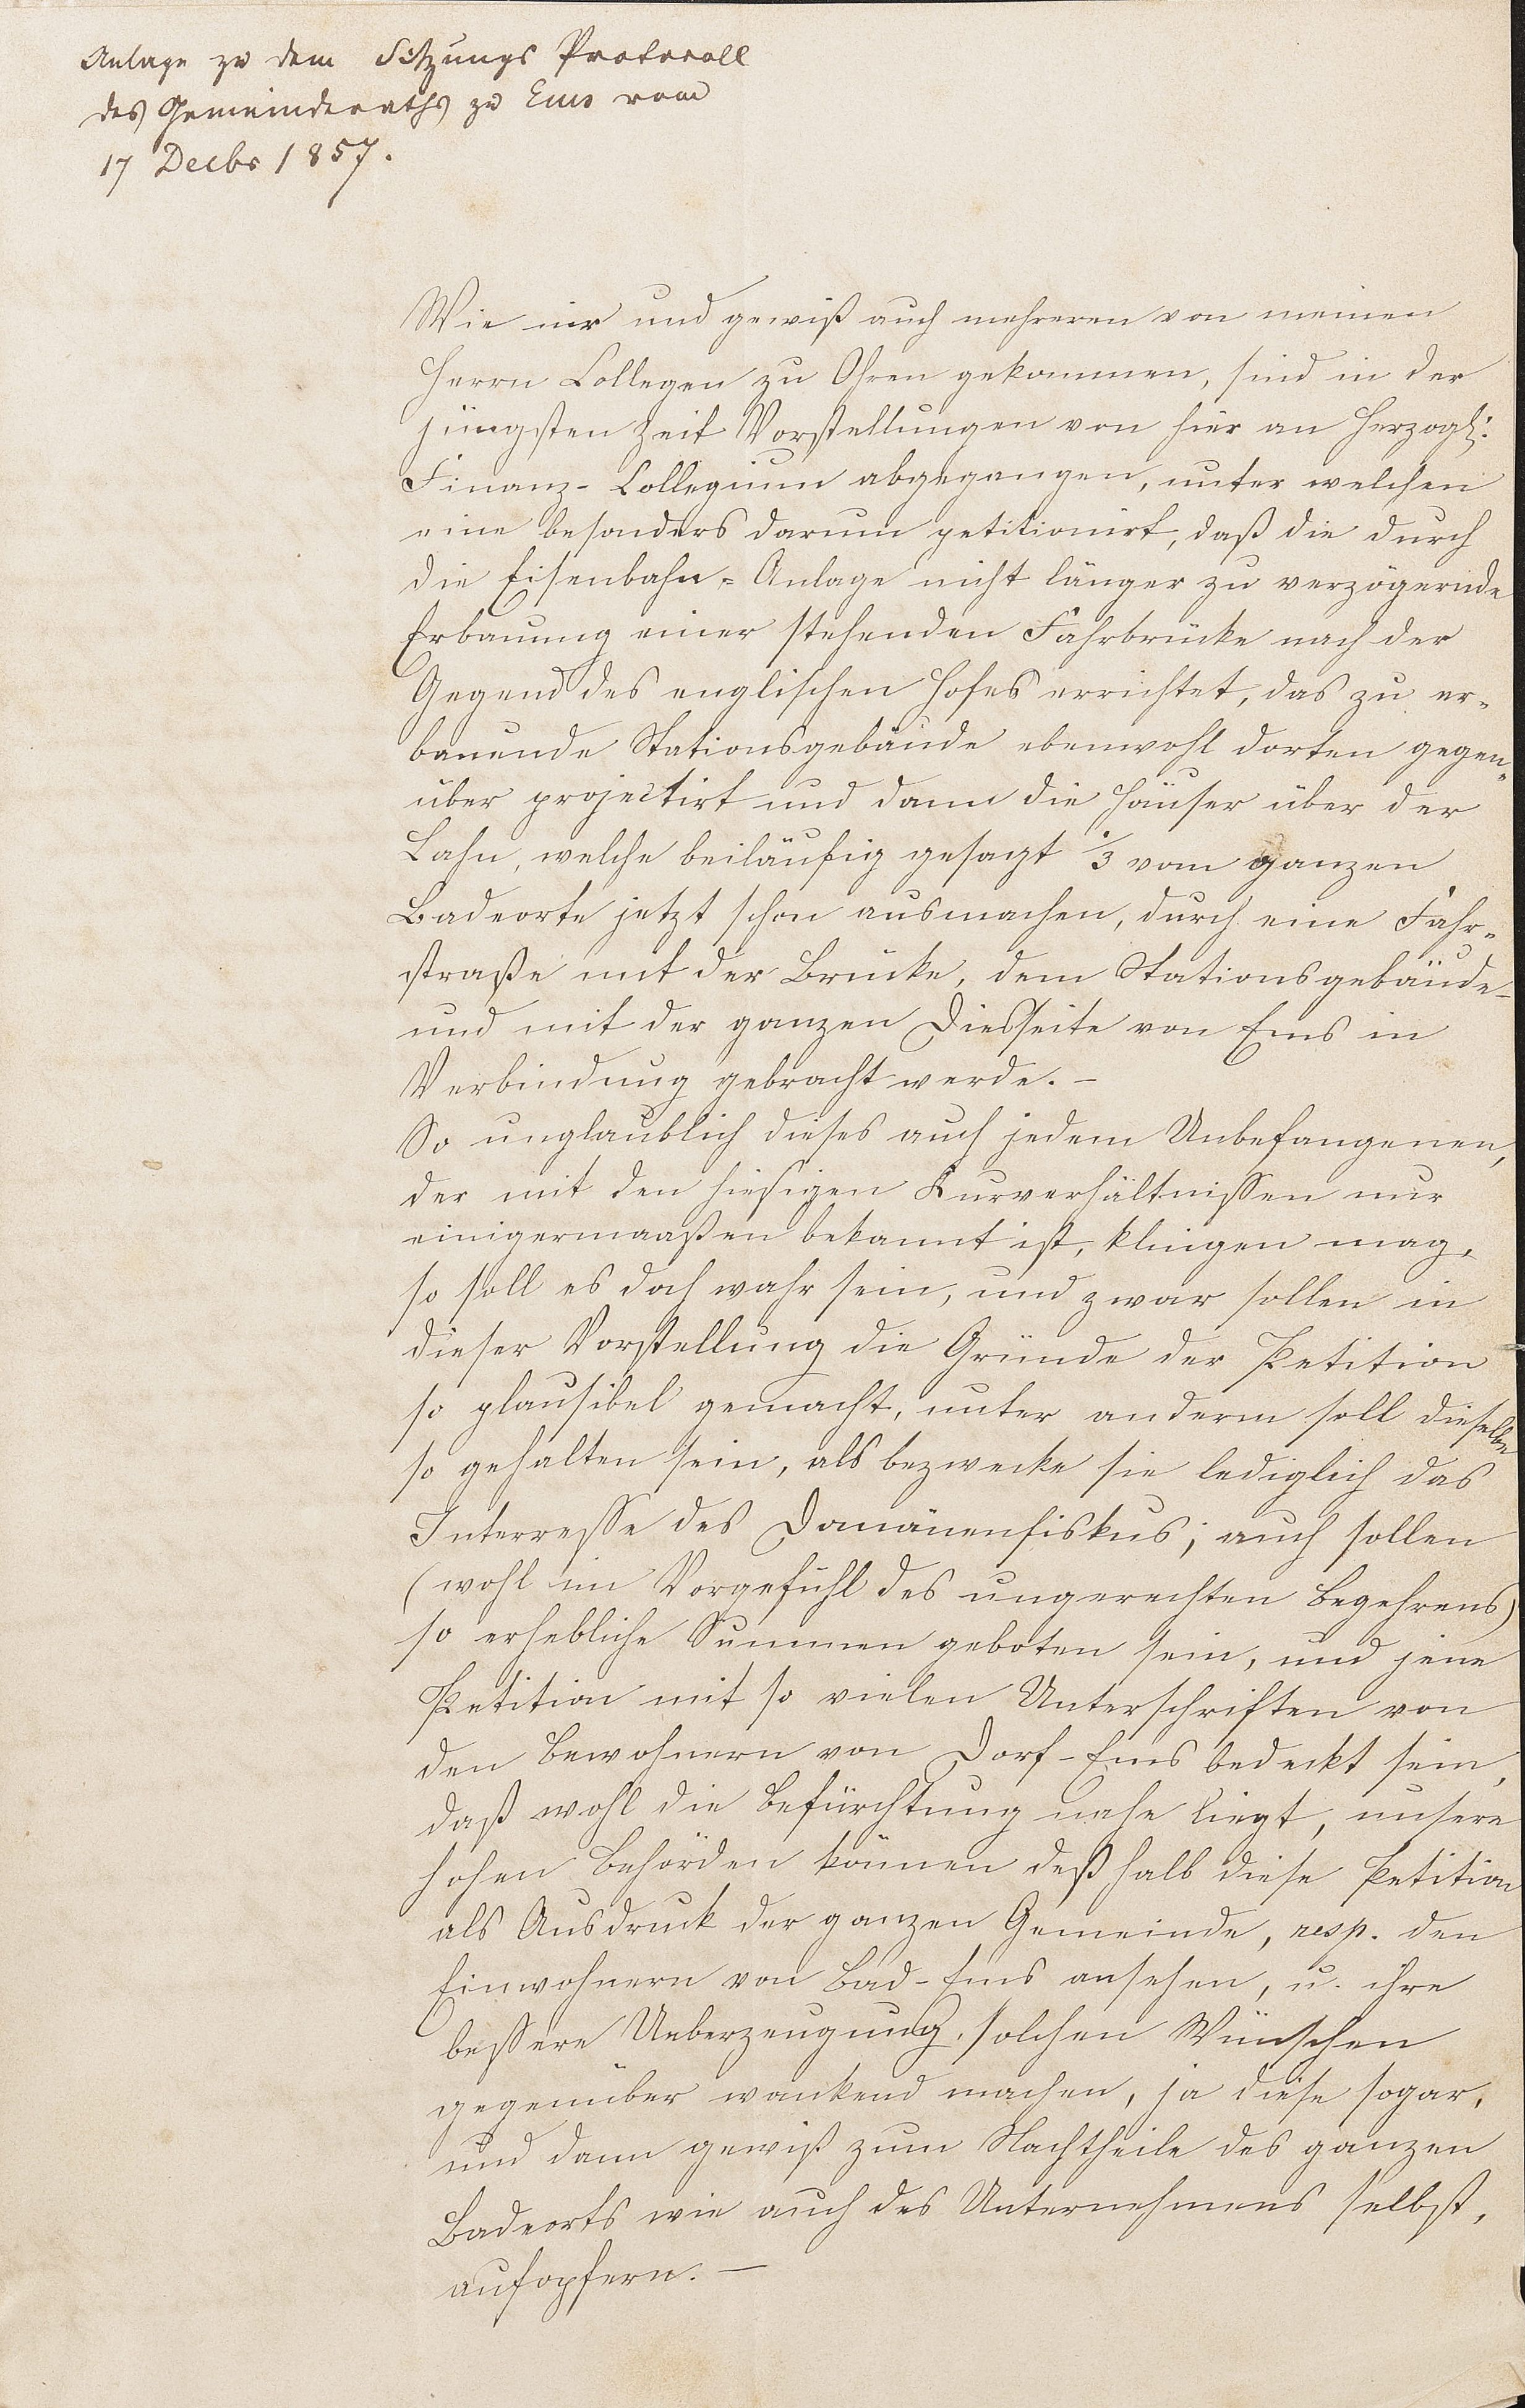 Anlage zu dem Sitzungs Protocoll
des Gemeinderaths zu Ems vom
17 Decbr 1857.
Wie mir und gewiß auch mehreren von meinen
Herrn Collegen zu Ohren gekommen, sind in der
jüngsten Zeit Vorstellungen von hier an Herzogl:
Finanz-Collegium abgegangen, unter welchen
eine besonders darum petitionirt, daß die durch
die Eisenbahn-Anlage nicht länger zu verzögernde
Erbauung einer stehenden Fahrbrücke nach der
Gegend des englischen Hofes errichtet, das zu er-
bauende Stationsgebäude ebenwohl dorten gegen-
über projectirt und dann die Häuser über der
Lahn, welche beiläufig gesagt 1/3 vom ganzen
Badeorte jetzt schon ausmachen, durch eine Fahr-
straße mit der Brücke, dem Stationsgebäude
und mit der ganzen Diesseite von Ems in
Verbindung gebracht werde. -
So unglaublich dieses auch jedem Unbefangenen,
der mit den hiesigen Kurverhältnissen nur
einigermaaßen bekannt ist, klingen mag,
so soll es doch wahr sein, und zwar sollen in
dieser Vorstellung die Gründe der Petition
so plausibel gemacht, unter anderm soll dieselbe
so gehalten sein, als bezwecke sie lediglich das
Interresse des Domänenfiskus; auch sollen
(wohl im Vorgefühl des ungerechten Begehrens)
so erhebliche Summen geboten sein, und jene
Petition mit so vielen Unterschriften von
den Bewohnern von Dorf-Ems bedeckt sein,
daß wohl die Befürchtung nahe liegt, unsere
hohen Behörden können deßhalb diese Petition
als Ausdruck der ganzen Gemeinde, resp. den
Einwohnern von Bad-Ems ansehen, u. ihre
bessere Ueberzeugung, solchen Wünschen
gegenüber wankend machen, ja diese sogar,
und dann gewiß zum Nachtheile des ganzen
Badeorts wie auch des Unternehmens selbst,
aufopfern. -